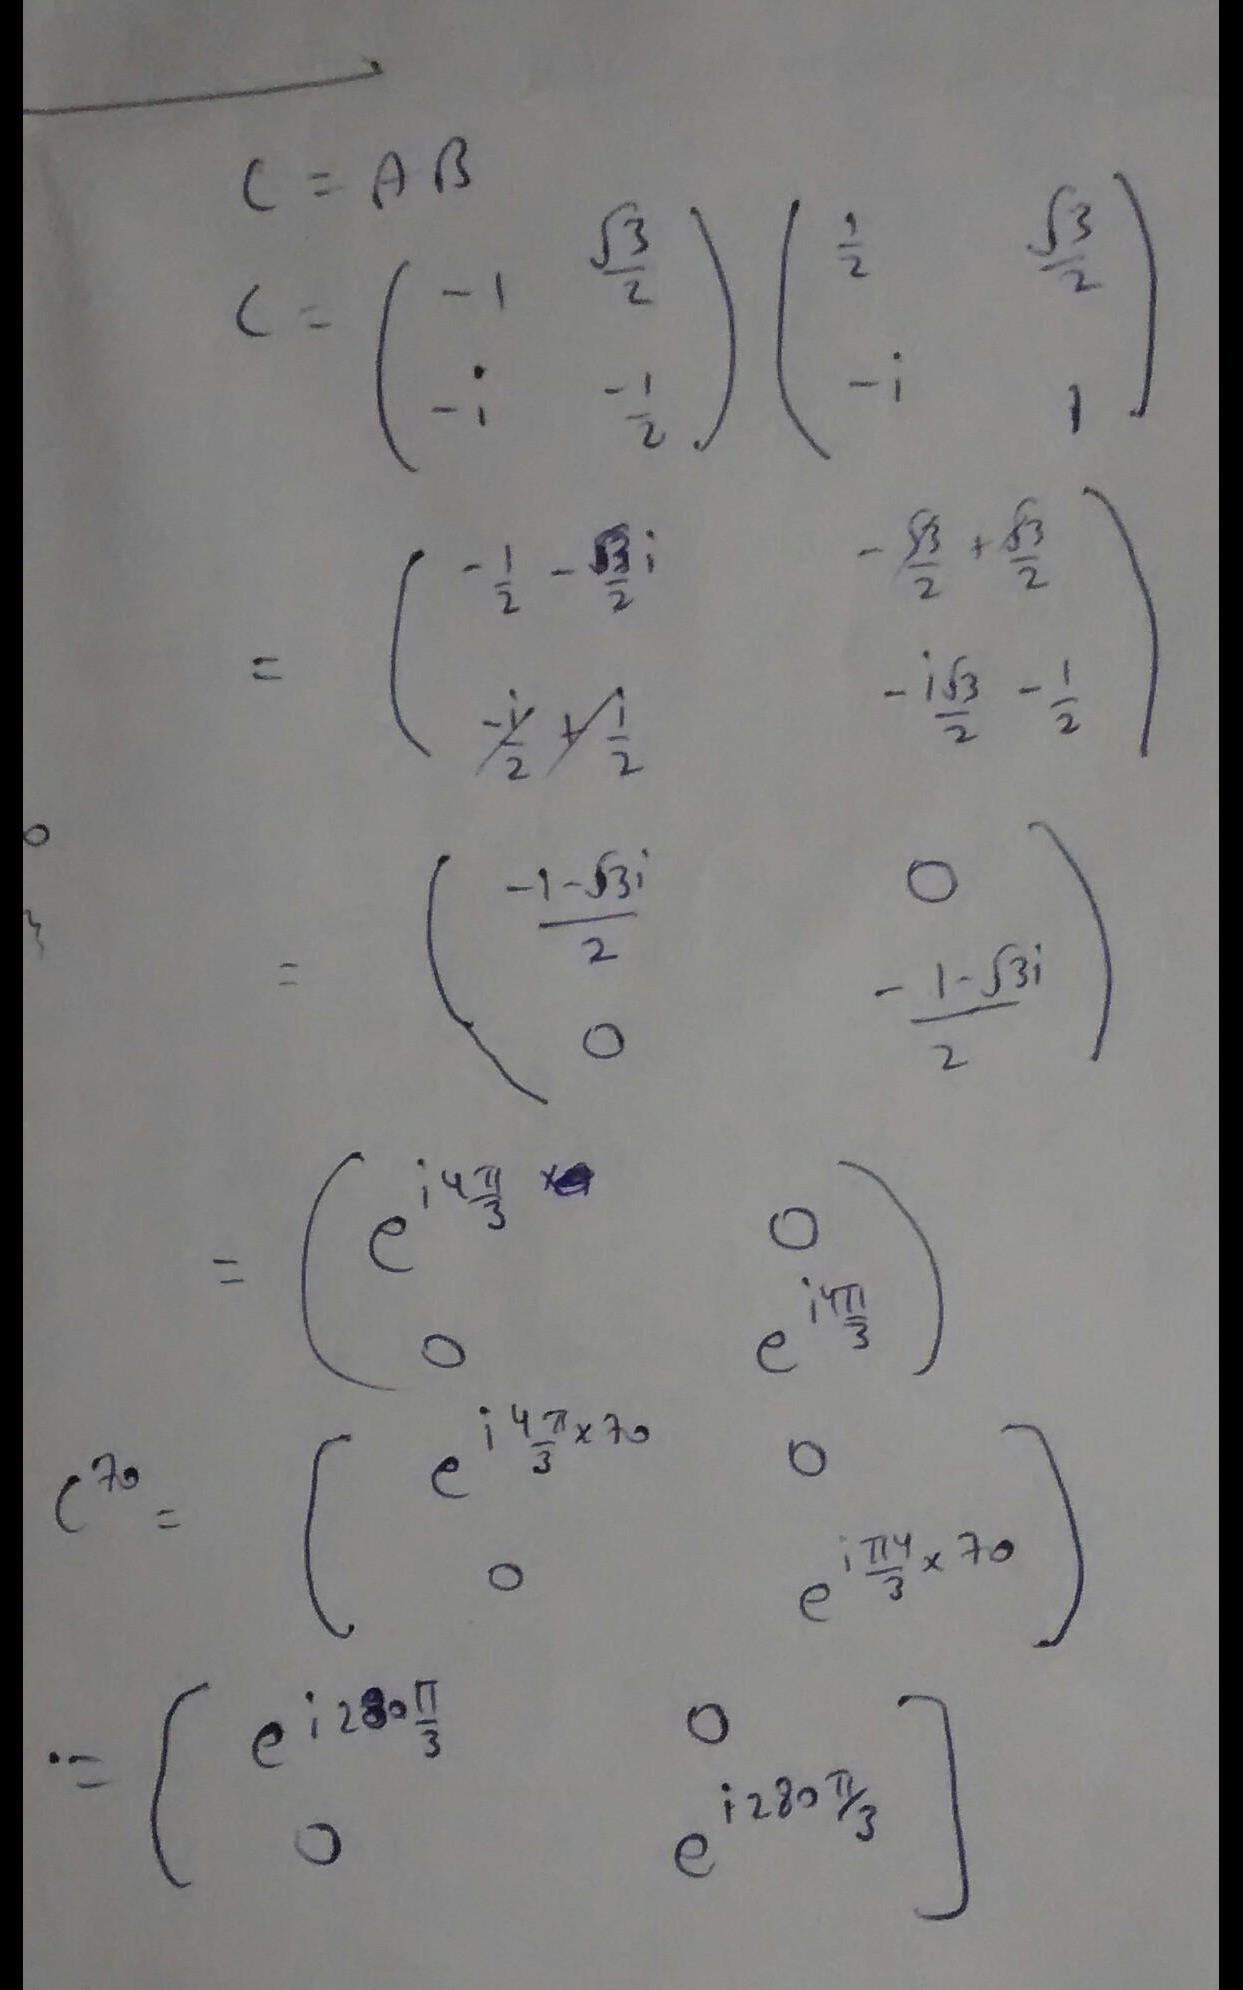 C = A B
C = ( -1 √3/2 ; -i -1/2 ) ( 1/2 √3/2 ; -i 1 )
= ( -1/2 - √3/2 i -√3/2 + √3/2 ; -i/2 + i/2 -i√3/2 - 1/2 )
= ( (-1-√3i)/2 0 ; 0 (-1-√3i)/2 )
= ( e^{i4π/3} 0 ; 0 e^{i4π/3} )
C^{70} = ( e^{i 4π/3 × 70} 0 ; 0 e^{i π4/3 × 70} )
= ( e^{i280π/3} 0 ; 0 e^{i280π/3} ]